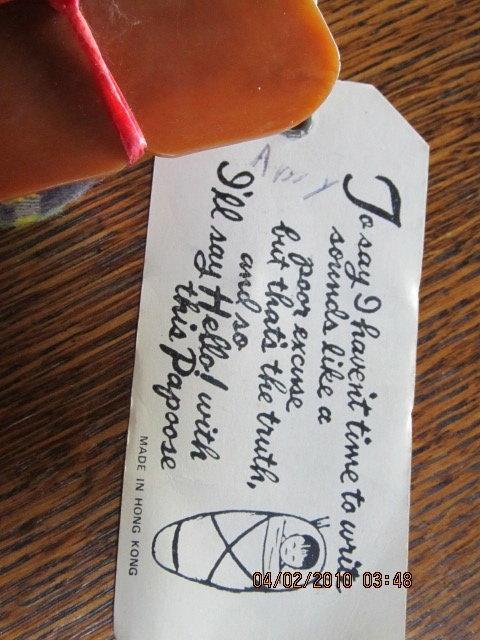 Amy
To say I haven't time to write
sounds like a
poor excuse
but that's the truth,
and so
I'll say Hello! with
this Papoose
MADE IN HONG KONG
04/02/2010 03:48